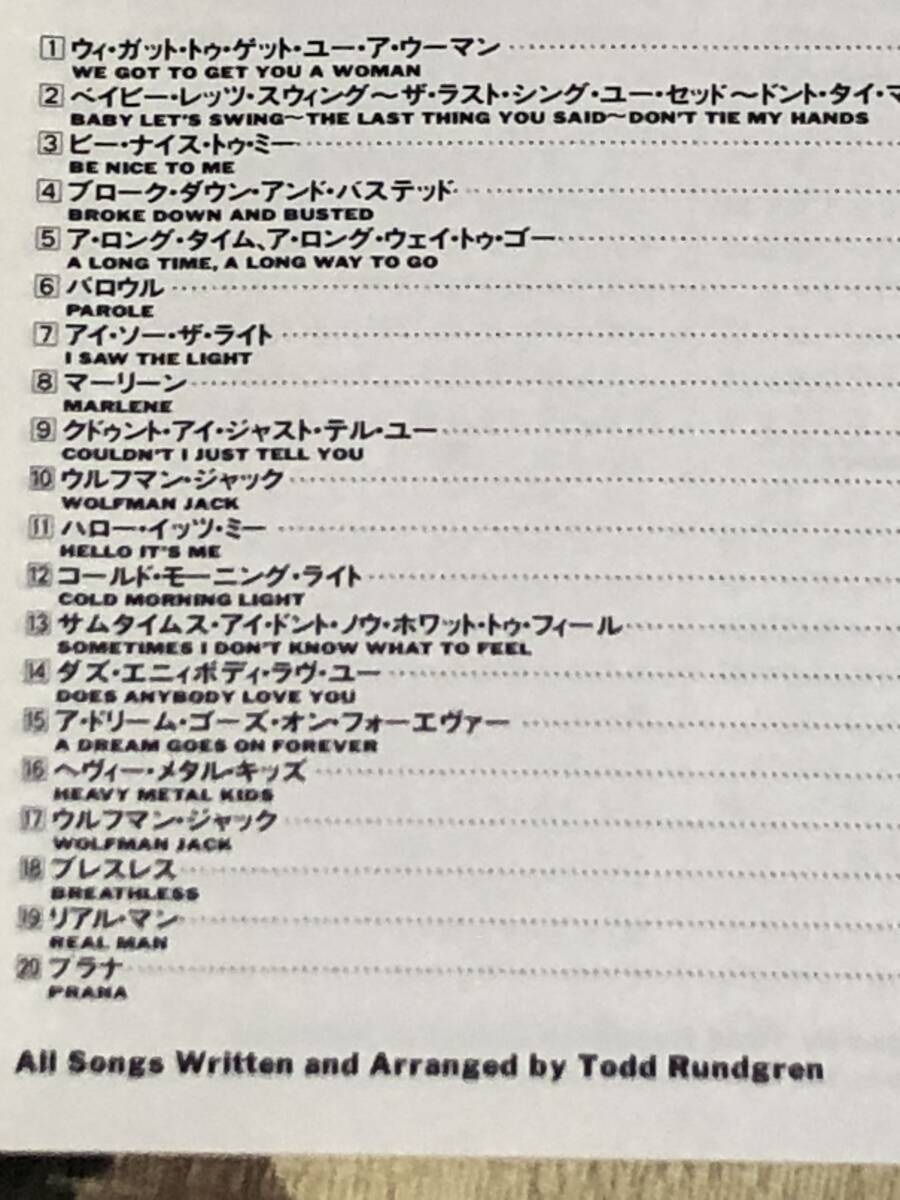 1 ウィ・ガット・トゥ・ゲット・ユー・ア・ウーマン
WE GOT TO GET YOU A WOMAN
2 ベイビー・レッツ・スウィング〜ザ・ラスト・シング・ユー・セッド〜ドント・タイ・マ
BABY LET'S SWING〜THE LAST THING YOU SAID〜DON'T TIE MY HANDS
3 ビー・ナイス・トゥ・ミー
BE NICE TO ME
4 ブローク・ダウン・アンド・バステッド
BROKE DOWN AND BUSTED
5 ア・ロング・タイム、ア・ロング・ウェイ・トゥ・ゴー
A LONG TIME, A LONG WAY TO GO
6 パロウル
PAROLE
7 アイ・ソー・ザ・ライト
I SAW THE LIGHT
8 マーリーン
MARLENE
9 クドゥント・アイ・ジャスト・テル・ユー
COULDN'T I JUST TELL YOU
10 ウルフマン・ジャック
WOLFMAN JACK
11 ハロー・イッツ・ミー
HELLO IT'S ME
12 コールド・モーニング・ライト
COLD MORNING LIGHT
13 サムタイムス・アイ・ドント・ノウ・ホワット・トゥ・フィール
SOMETIMES I DON'T KNOW WHAT TO FEEL
14 ダズ・エニィボディ・ラヴ・ユー
DOES ANYBODY LOVE YOU
15 ア・ドリーム・ゴーズ・オン・フォーエヴァー
A DREAM GOES ON FOREVER
16 ヘヴィー・メタル・キッズ
HEAVY METAL KIDS
17 ウルフマン・ジャック
WOLFMAN JACK
18 ブレスレス
BREATHLESS
19 リアル・マン
REAL MAN
20 プラナ
PRANA
All Songs Written and Arranged by Todd Rundgren